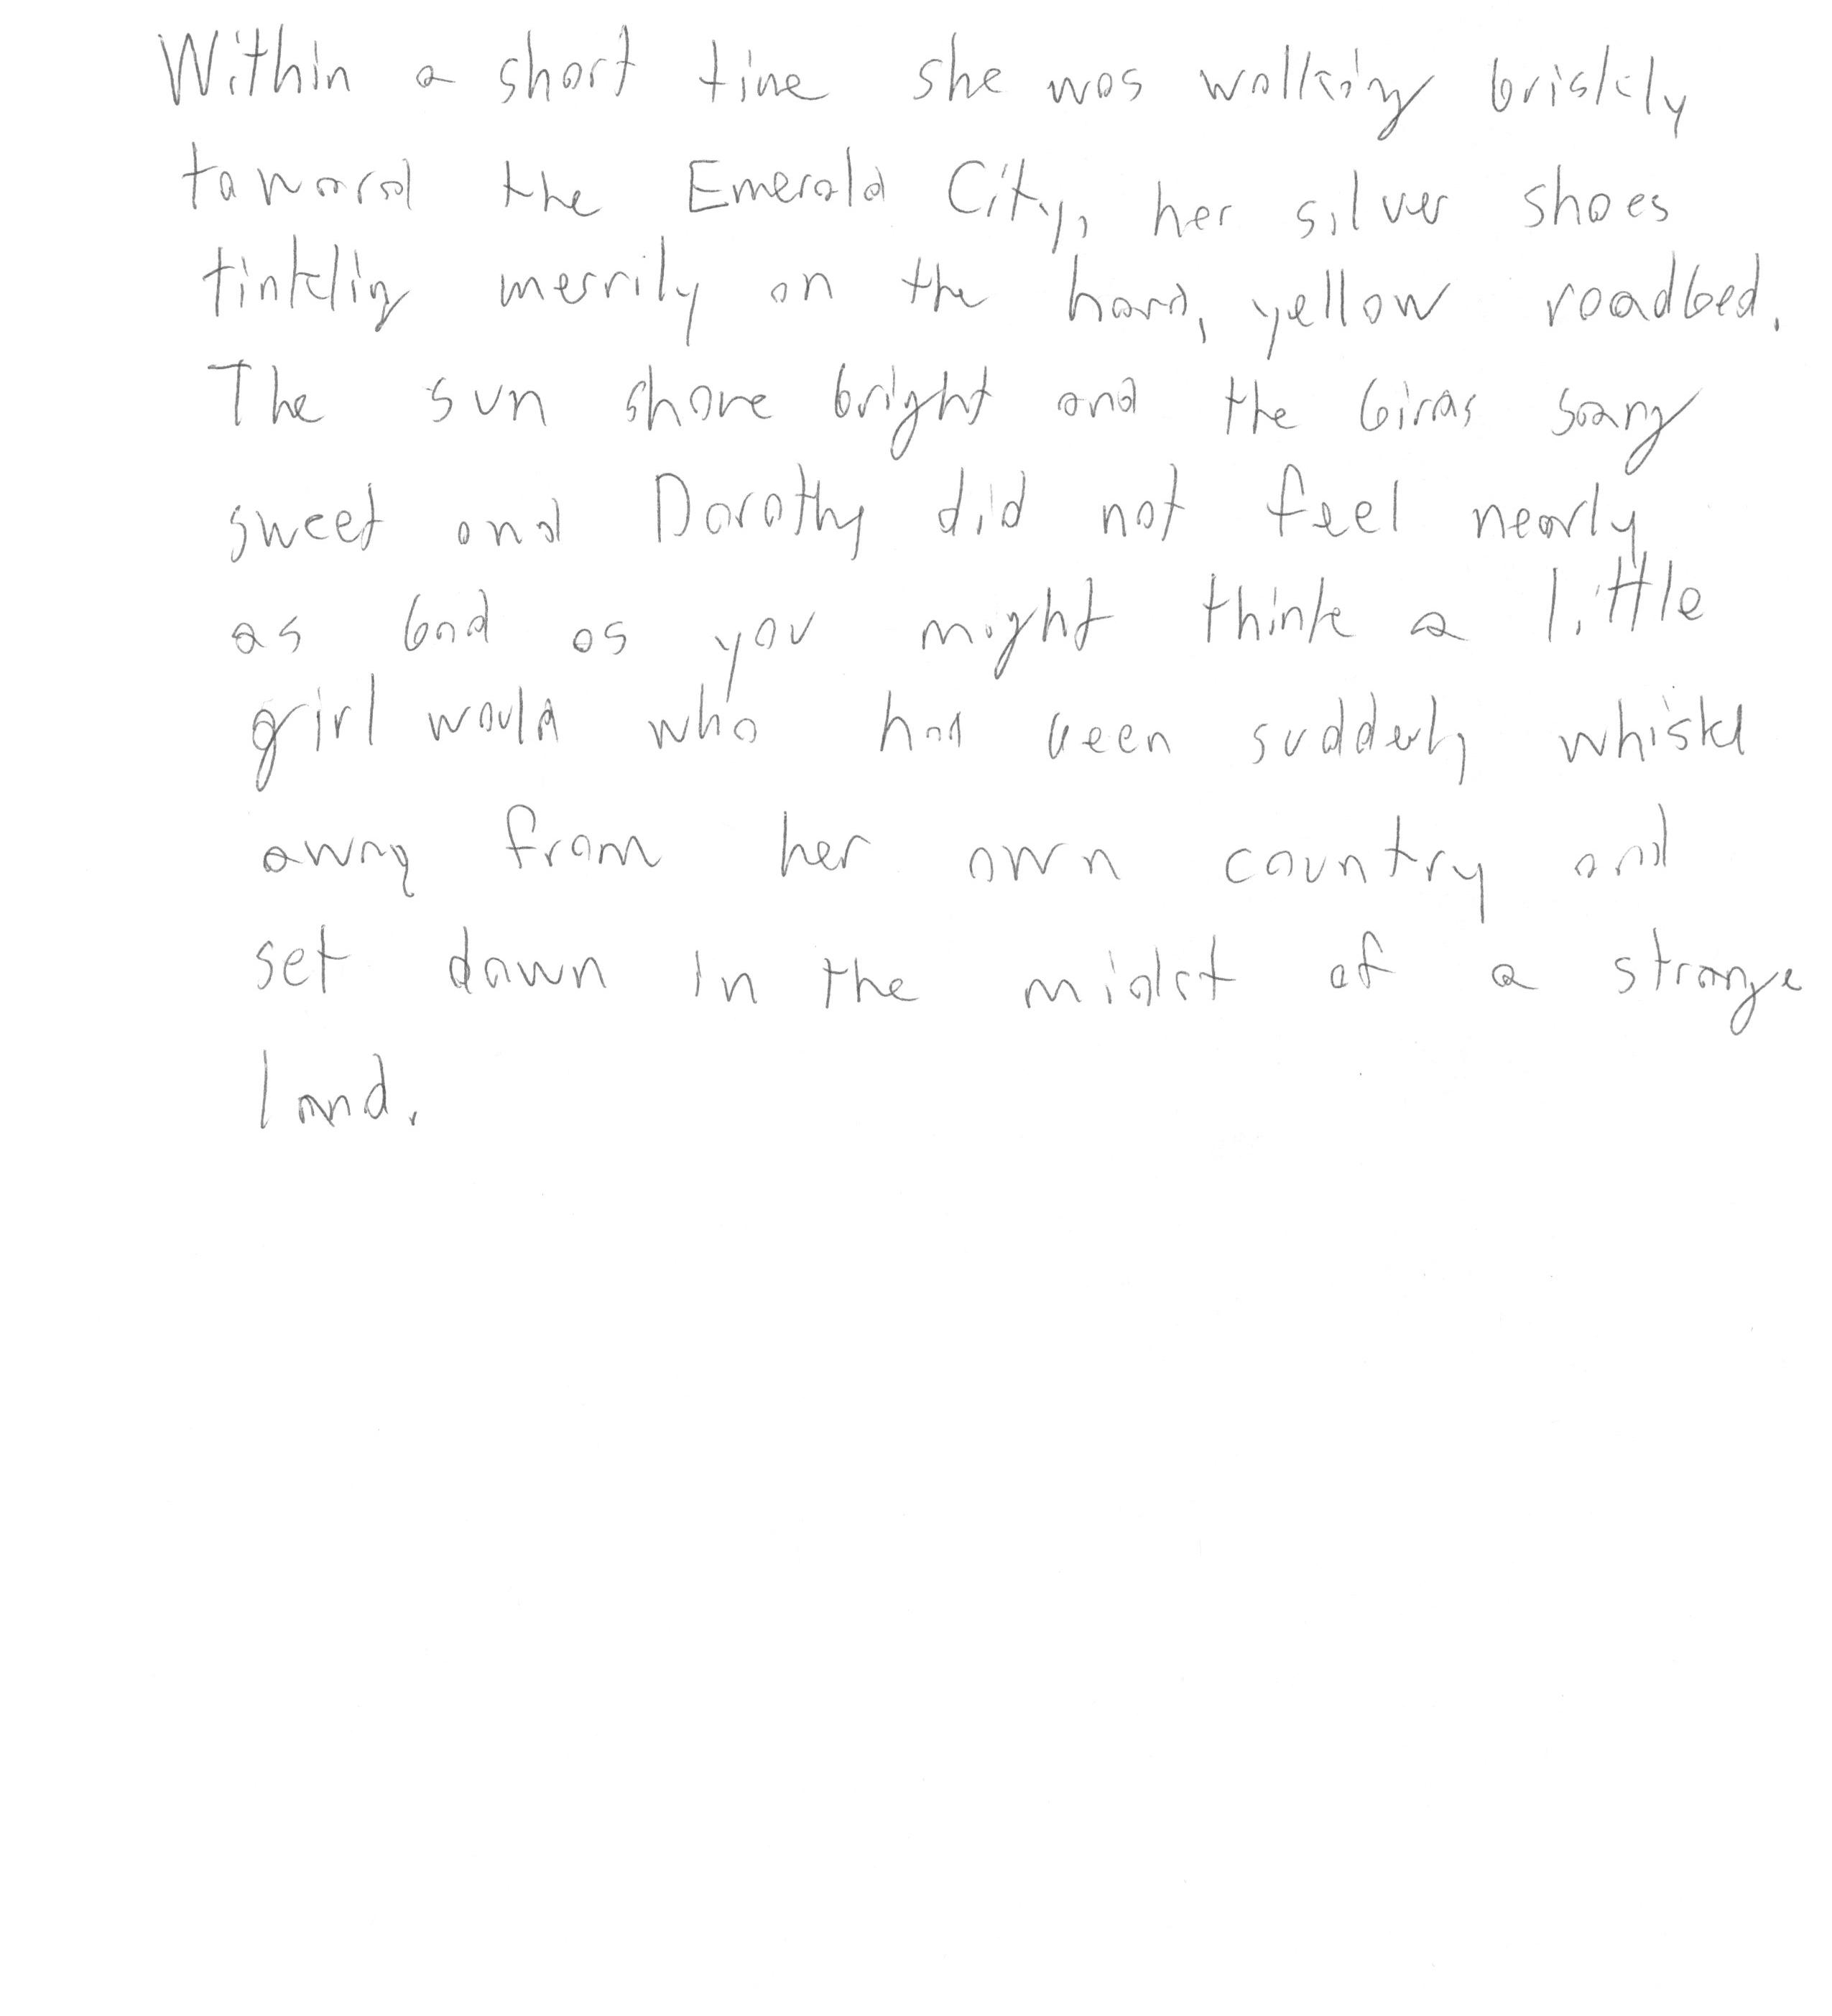 Within a short time she was walking briskly
toward the Emerald City, her silver shoes
tinkling merrily on the hard, yellow roadbed.
The sun shone bright and the birds sang
sweet and Dorothy did not feel nearly
as bad as you might think a little
girl would who had been suddenly whisked
away from her own country and
set down in the midst of a strange
land.